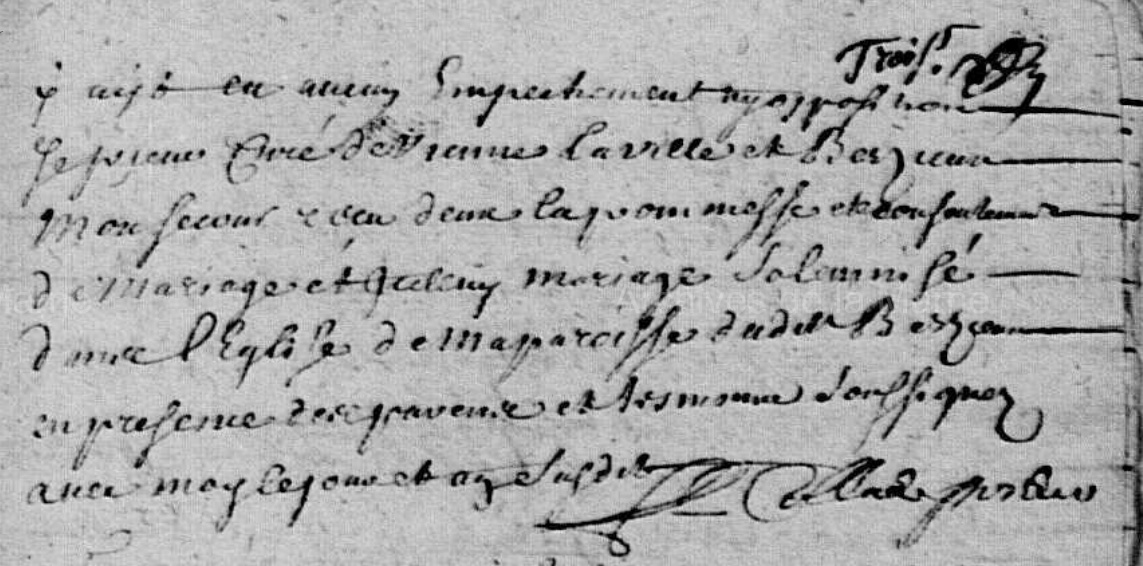 Trois.
y ayt eu aucun Empechement ny opposition
Je prieur Curé de Vienne la ville et Berzieux
Mon secour receu deux la prommesse et consentement
de Mariage et mariage Solemnisé
dans l'Eglise de Ma paroisse dudit Berzieux
en presence des parens et tesmoins soussignez
avec moy le jour et an susdit